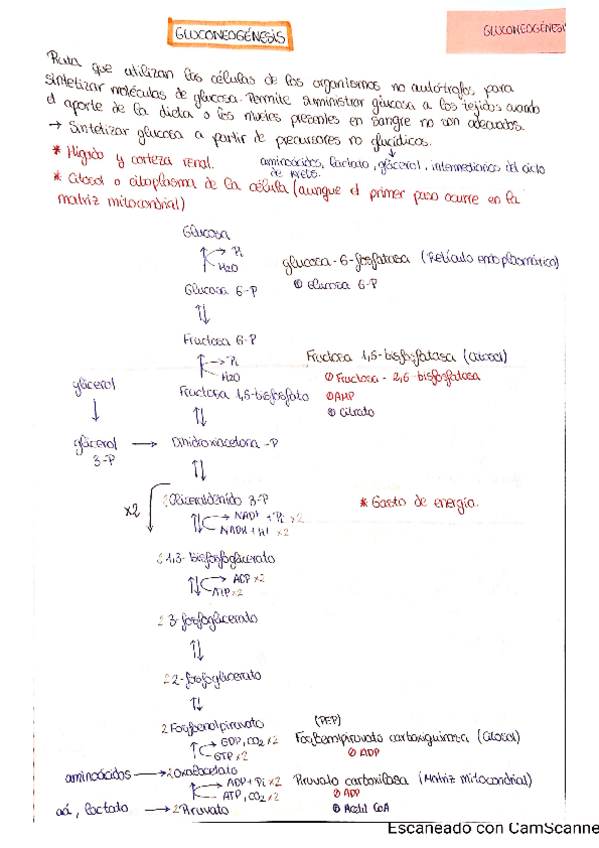 GLUCONEOGÉNESIS
GLUCONEOGÉNESI
Ruta que utilizan las células de los organismos no autótrofos para
sintetizar moléculas de glucosa. Permite suministrar glucosa a los tejidos cuando
el aporte de la dieta o los niveles presentes en sangre no son adecuados.
→ Sintetizar glucosa a partir de precursores no glucídicos.
* Hígado y corteza renal.
aminoácidos, lactato, glicerol, intermediarios del ciclo
de Krebs.
* Citosol o citoplasma de la célula (aunque el primer paso ocurre en la
matriz mitocondrial)
Glucosa
Pi
H2O
glucosa-6-fosfatasa (Retículo endoplasmático)
Glucosa 6-P
Glucosa 6-P
Fructosa 6-P
Pi
H2O
Fructosa 1,5-bisfosfatasa (Citosol)
Fructosa - 2,6-bisfosfatasa
glicerol
Fructosa 1,5-bisfosfato
AMP
Citrato
glicerol
3-P
→ Dihidroxiacetona -P
x2
2 Gliceraldehído 3-P
* Gasto de energía.
NAD+ + Pi x2
NADH + H+ x2
2 1,3-bisfosfoglicerato
ADP x2
ATP x2
2 3-fosfoglicerato
2 2-fosfoglicerato
2 Fosfoenolpiruvato
(PEP)
GDP, CO2 x2
GTP x2
Fosfoenolpiruvato carboxiquinasa (Citosol)
ADP
aminoácidos → 2 Oxalacetato
ADP + Pi x2
ATP, CO2 x2
Piruvato carboxilasa (Matriz mitocondrial)
ADP
aá, lactato → 2 Piruvato
Acetil CoA
Escaneado con CamScanne